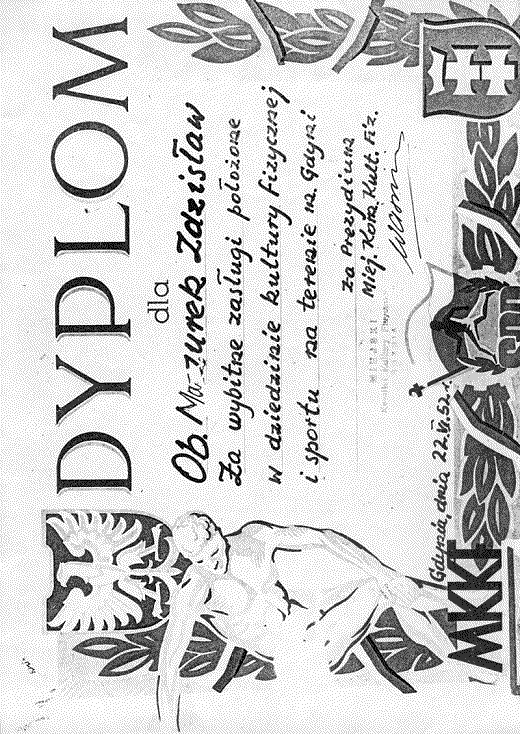 DYPLOM
dla
Ob. Mazurek Zdzisław
Za wybitne zasługi położone
w dziedzinie kultury fizycznej
i sportu na terenie m. Gdyni
za Prezydium
Miej. Kom. Kult. Fiz.
Gdynia, dnia 22.VI.52 r.
MKKF
SPO